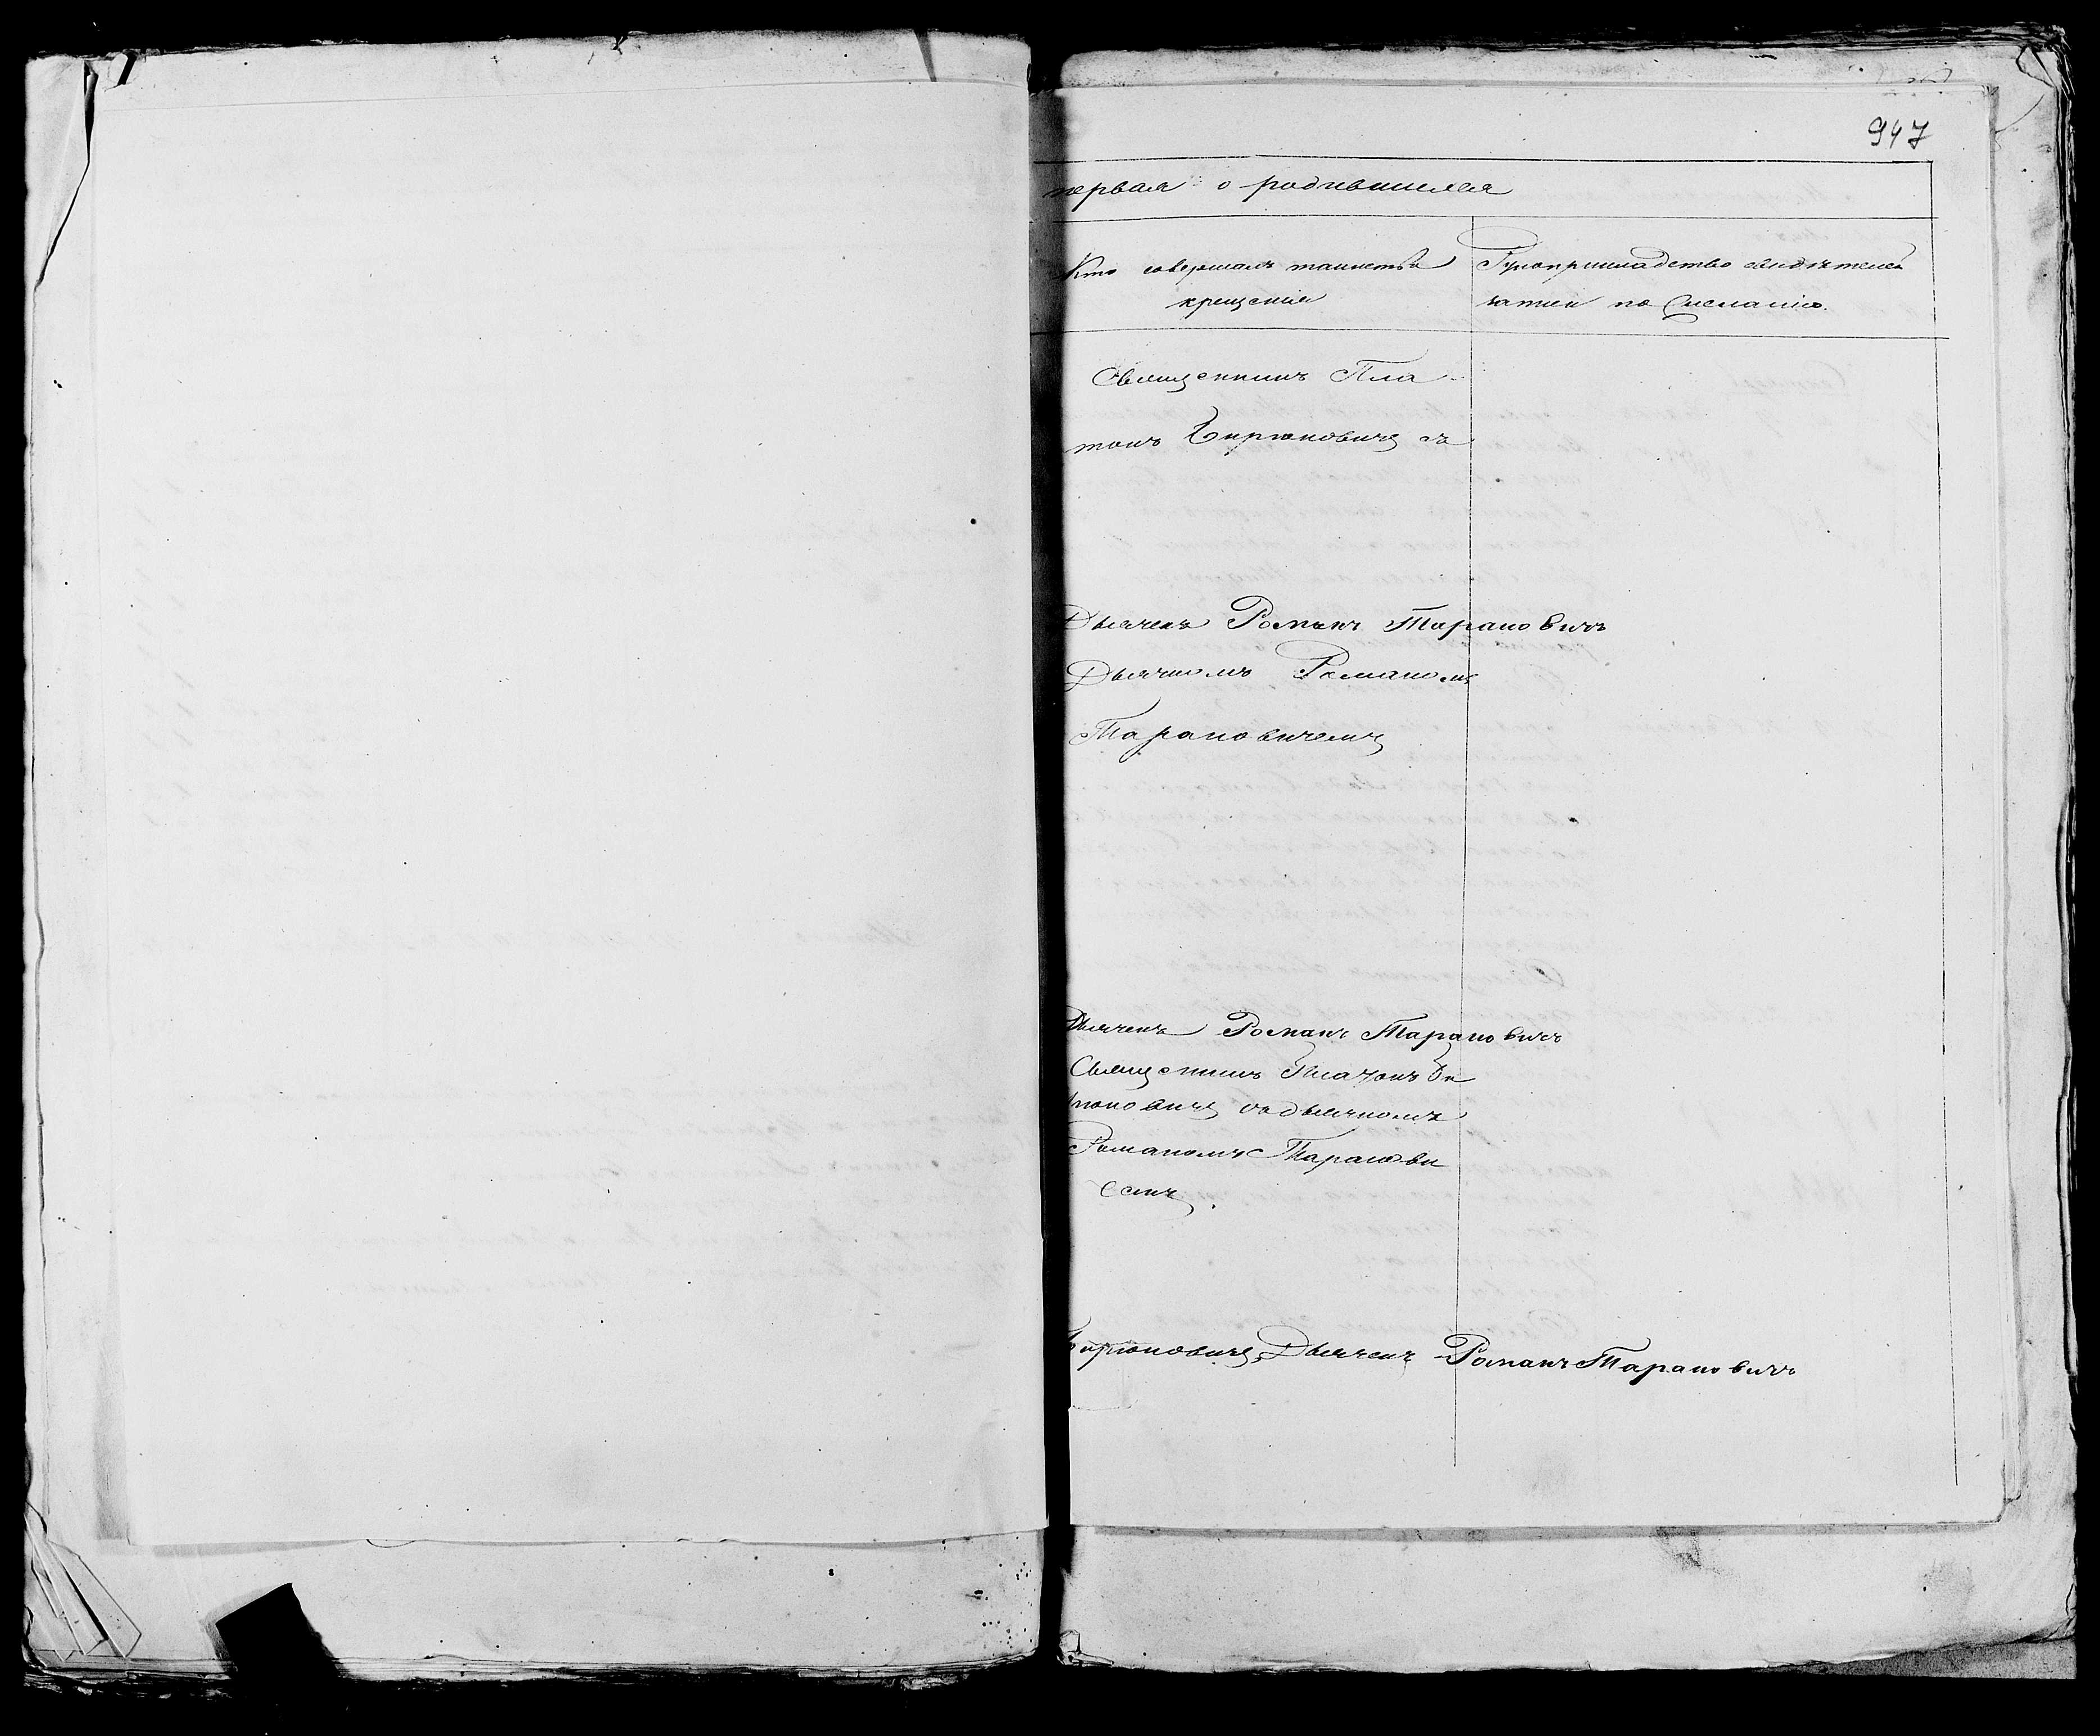 947
первая о родившихся
Кто совершалъ таинства
крещенія
Рукоприкладство свидѣтелей
записи по желанію.
Священникъ Пла
тонъ Бирюковичъ съ
Дьячекъ Романъ Тарановичъ
Дьячкомъ Романомъ
Тарановичемъ
Дьячекъ Романъ Тарановичъ
Священникъ Платонъ Би
рюковичъ съ дьячкомъ
Романомъ Таранови
чемъ.
Бирюковичъ, Дьячекъ Романъ Тарановичъ